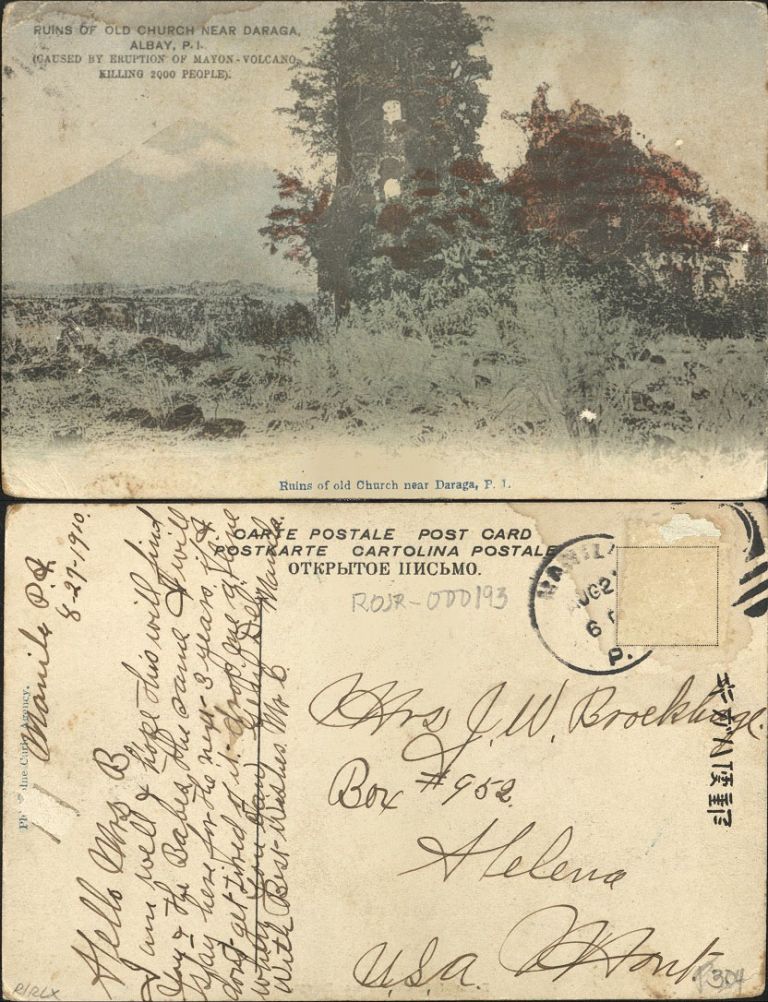 RUINS OF OLD CHURCH NEAR DARAGA,
ALBAY, P. I.
(CAUSED BY ERUPTION OF MAYON-VOLCANO,
KILLING 2000 PEOPLE).
Ruins of old Church near Daraga, P. I.
CARTE POSTALE POST CARD
POSTKARTE CARTOLINA POSTALE
ОТКРЫТОЕ ПИСЬМО.
ROJR-000193
MANIL
AUG 2
6
P.
Manila P.I.
8-27-1910.
Hello Mrs B
I am well & hope this will find
you & the Babes the same I will
stay here for the next 3 years if I
dont get tired of it. drop me a line
when you can
With Best Wishes Mr B.
Manila.
Mrs J. W. Brocklidge.
Box #952
Helena
U.S.A. Mont.
Card Agency.
P/RLX
304